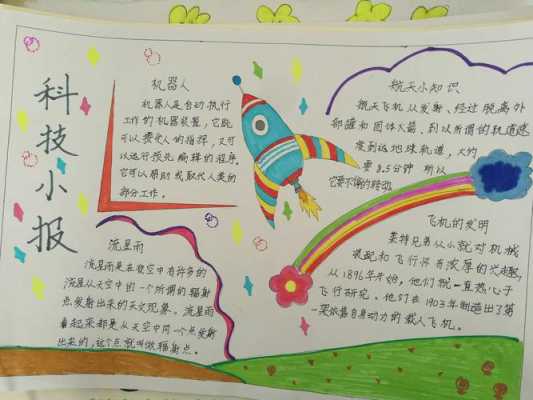 科技小报
机器人
机器人是自动执行
工作的机器装置，它既
可以接受人的指挥，又可
以运行预先编排的程序。
它可以帮助或取代人类的
部分工作。
航天小知识
航天飞机从发射、经过脱离外
部罐和固体火箭、到以所谓的轨道速
度到达地球轨道，大约
要8.5分钟 所以
它要不停的转动
流星雨
流星雨是在夜空中有许多的
流星从天空中的一个所谓的辐射
点发射出来的天文现象。流星雨
看起来都是从天空中同一个点发射
出来的，这个点就叫做辐射点。
飞机的发明
莱特兄弟从小就对机械
装配和飞行怀有浓厚的兴趣，
从1896年开始，他们就一直热心于
飞行研究。他们在1903年制造出了第
一架依靠自身动力的载人飞机。